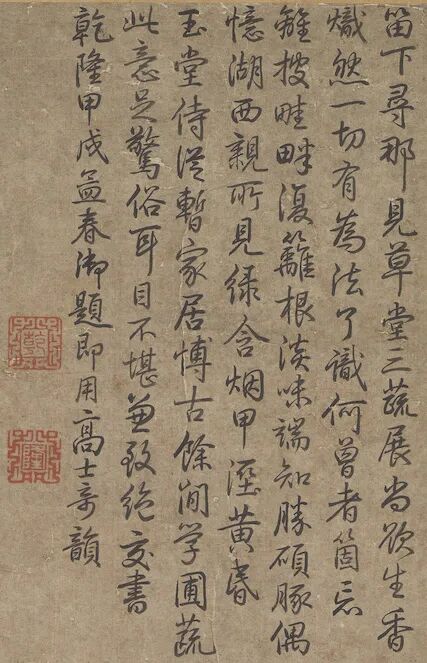 笛下尋那見草堂三蔬展尚欲生香
熾然一切有為法了識何曾者箇忘
離披畦畔復籬根淡味端知勝碩豚偶
憶湖西親所見綠含烟甲溼黃昏
玉堂侍從暫家居博古餘閒學圃蔬
此意足驚俗耳目不堪兼致絕交書
乾隆甲戌孟春御題即用高士奇韻